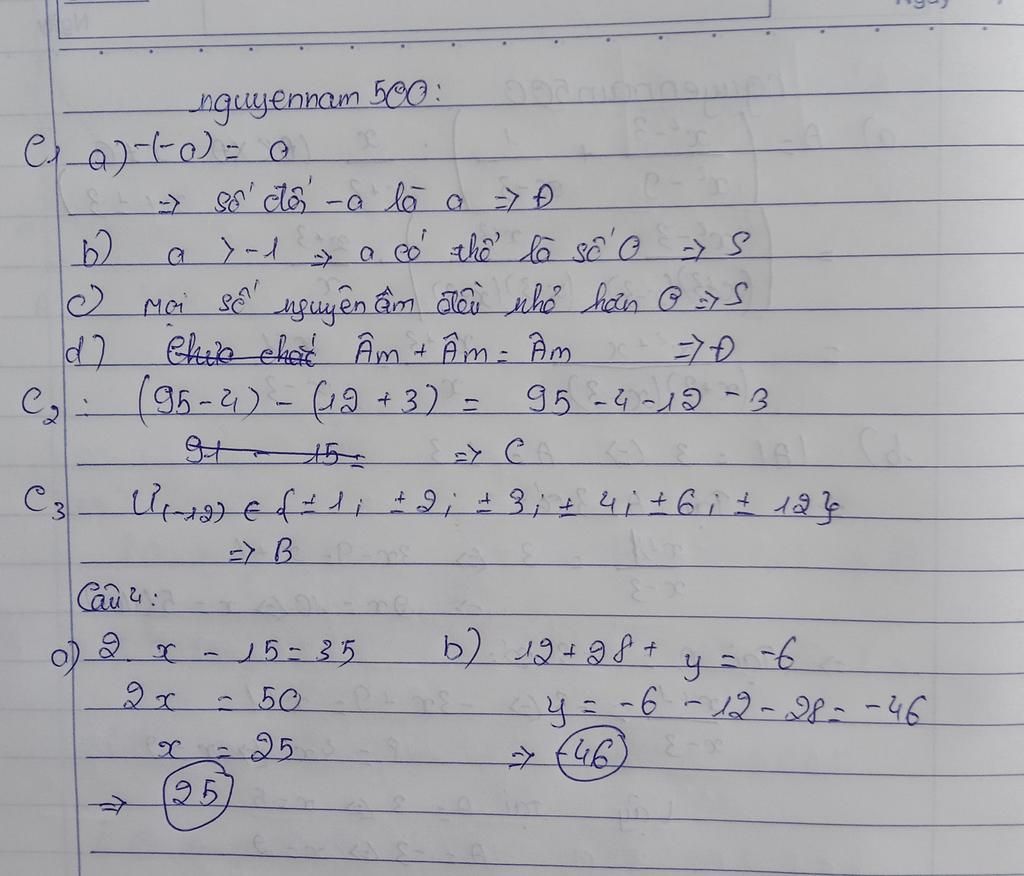 nguyennam 500:
C1 a) -(-a) = a
=> số đối -a là a => Đ
b) a > -1 => a có thể là số 0 => S
c) mọi số nguyên âm đều nhỏ hơn 0 => S
d) Chưa chắc Âm + Âm = Âm => Đ
C2 : (95-4) - (12 + 3) = 95 - 4 - 12 - 3
91 - 15 = => C
C3 Ư(-12) ∈ {±1; ±2; ±3; ±4; ±6; ±12}
=> B
Câu 4:
a) 2. x - 15 = 35 b) 12 + 28 + y = -6
2x = 50 y = -6 - 12 - 28 = -46
x = 25 => -46
=> 25